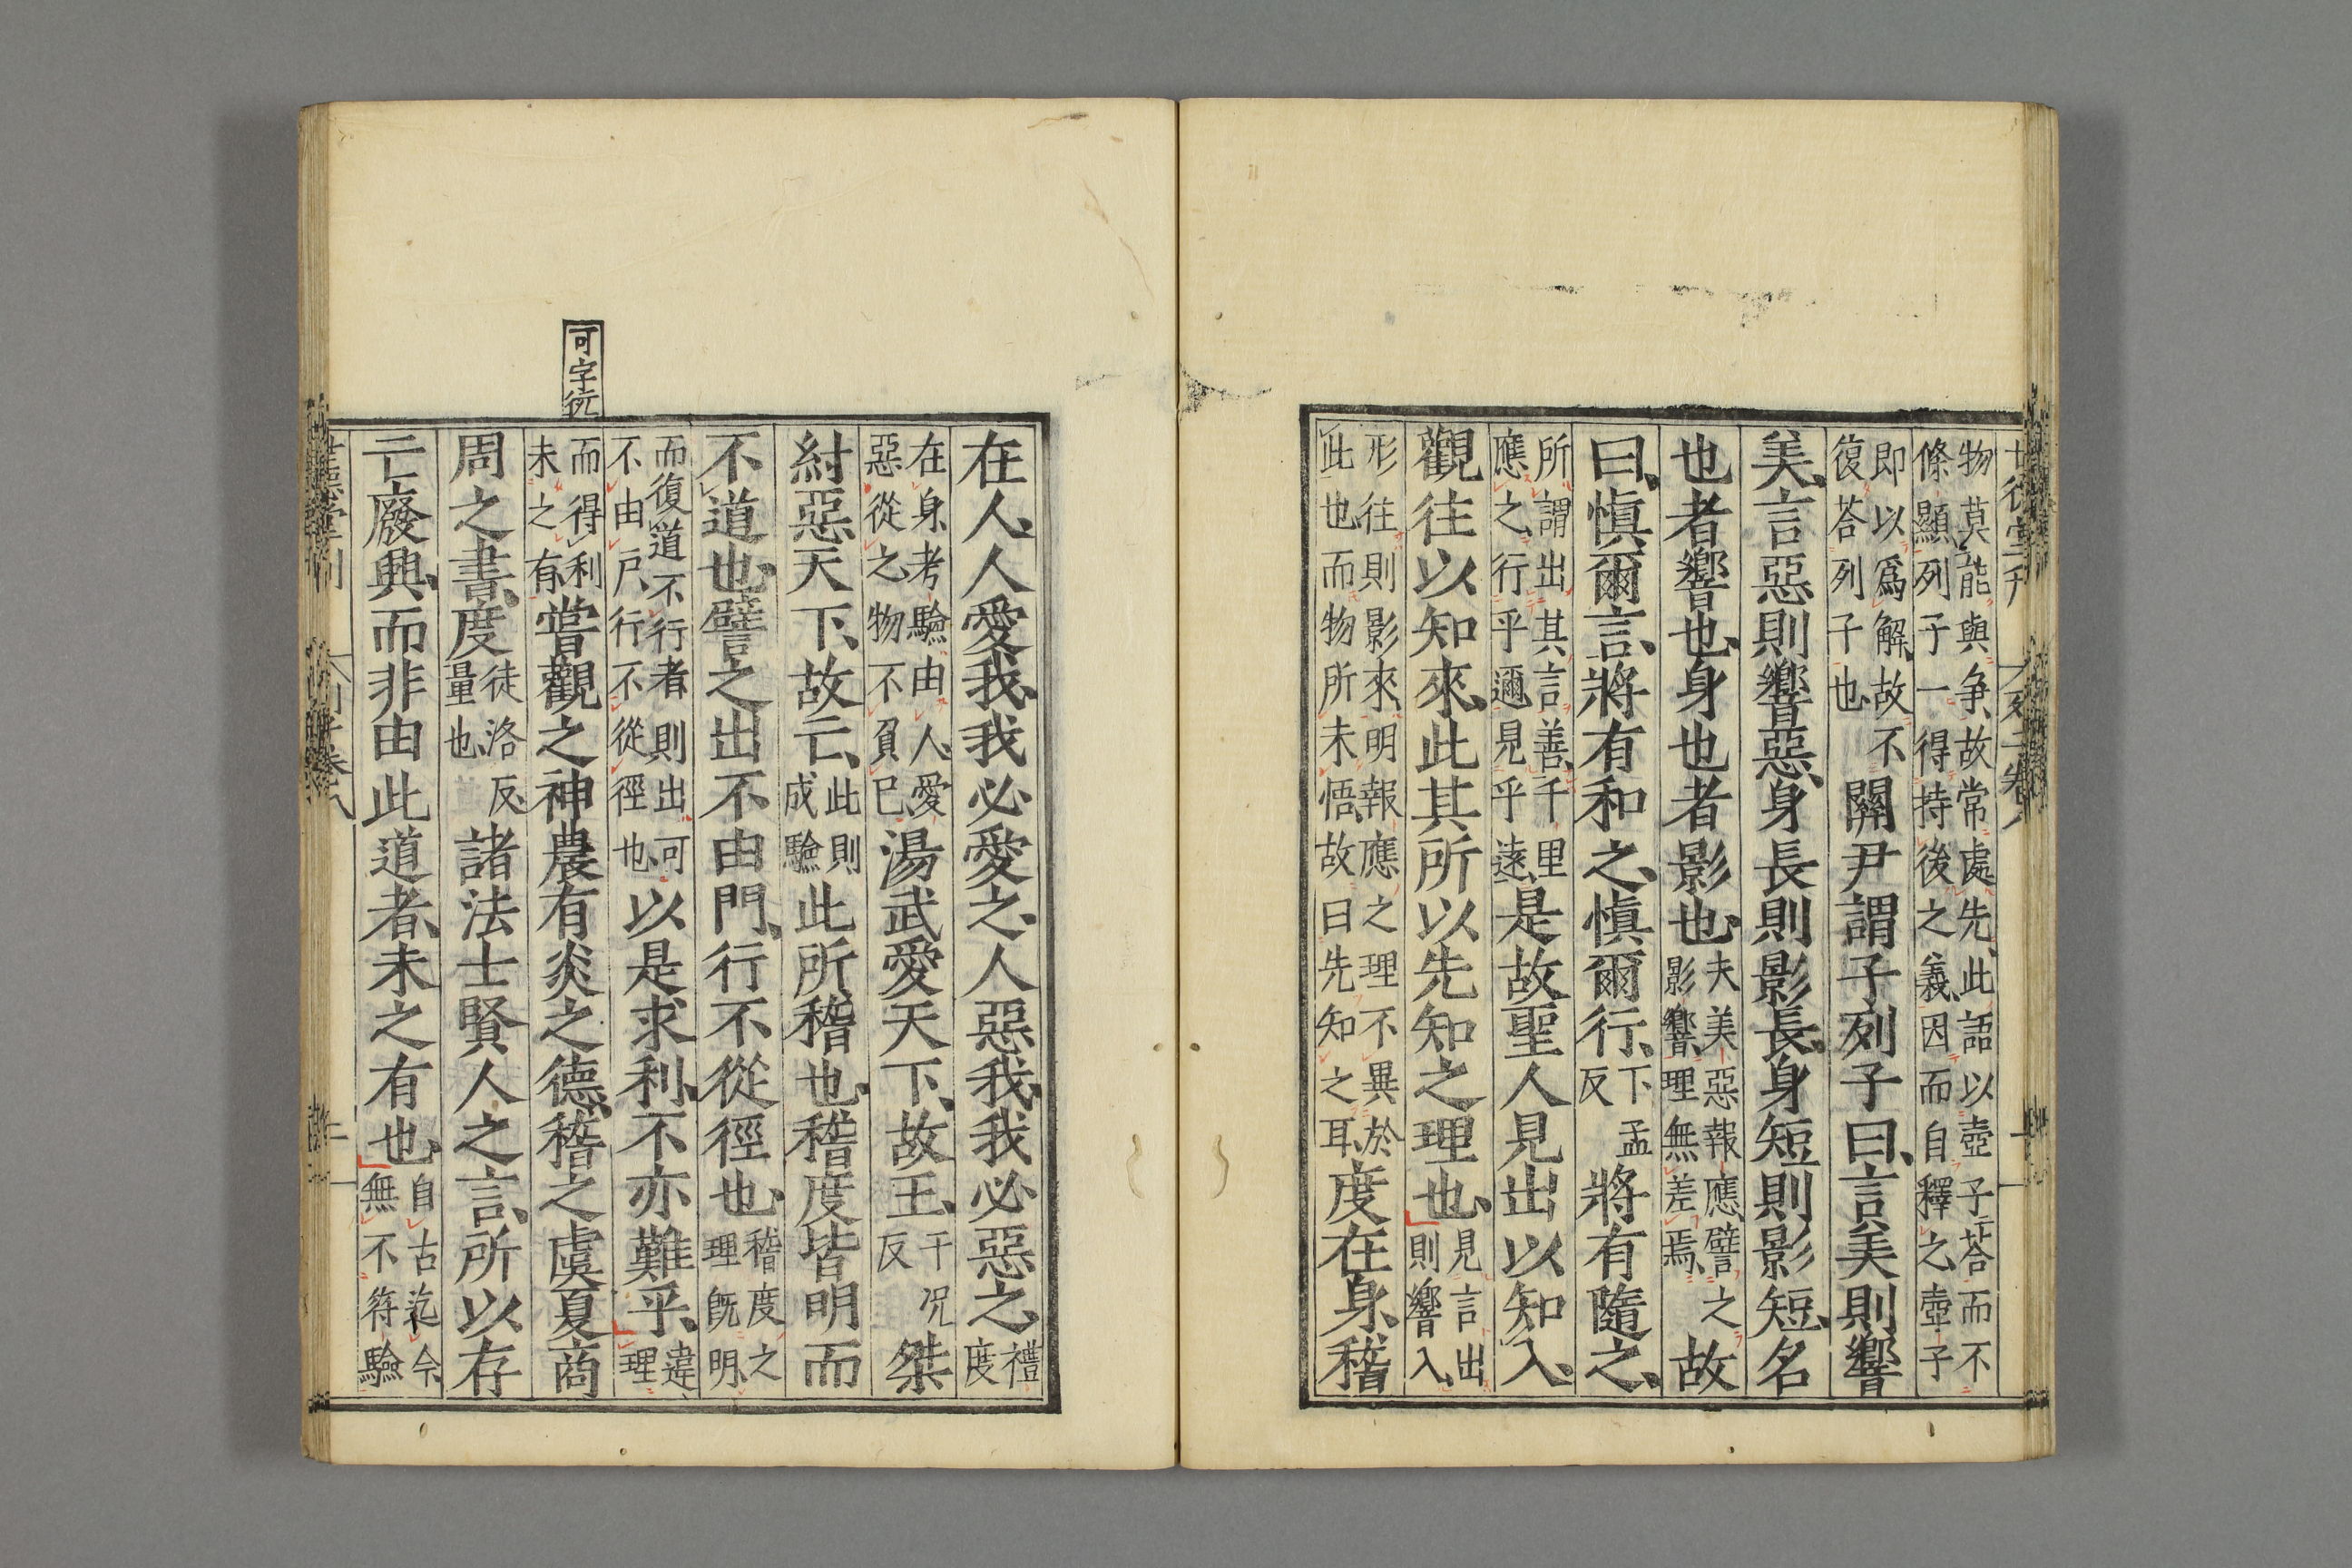 物莫能與争故常處先此語以壺子荅而不
條顯列子一得持後之義因而自釋之壺子
即以爲解故不
復荅列子也
關尹謂子列子曰言美則響
美言惡則響惡身長則影長身短則影短名
也者響也身也者影也
夫美惡報應譬之
影響理無差焉
故
曰慎爾言將有和之慎爾行
下孟
反
將有隨之
所謂出其言善千里
應之行乎邇見乎遠
是故聖人見出以知入
觀往以知來此其所以先知之理也
見言出
則響入
形往則影來明報應之理不異於
此也而物所未悟故曰先知之耳
度在身稽
在人人愛我我必愛之人惡我我必惡之
禮
度
在身考驗由人愛
惡從之物不負已
湯武愛天下故王
于况
反
桀
紂惡天下故亡
此則
成驗
此所稽也稽度皆明而
不道也譬之出不由門行不從徑也
稽度之
理旣明
而復道不行者則出可
不由戶行不從徑也
以是求利不亦難乎
違
理
可字衍
而得利
未之有
嘗觀之神農有炎之德稽之虞夏商
周之書度
徒洛反
量也
諸法士賢人之言所以存
亡廢興而非由此道者未之有也
自古迄今
無不符驗